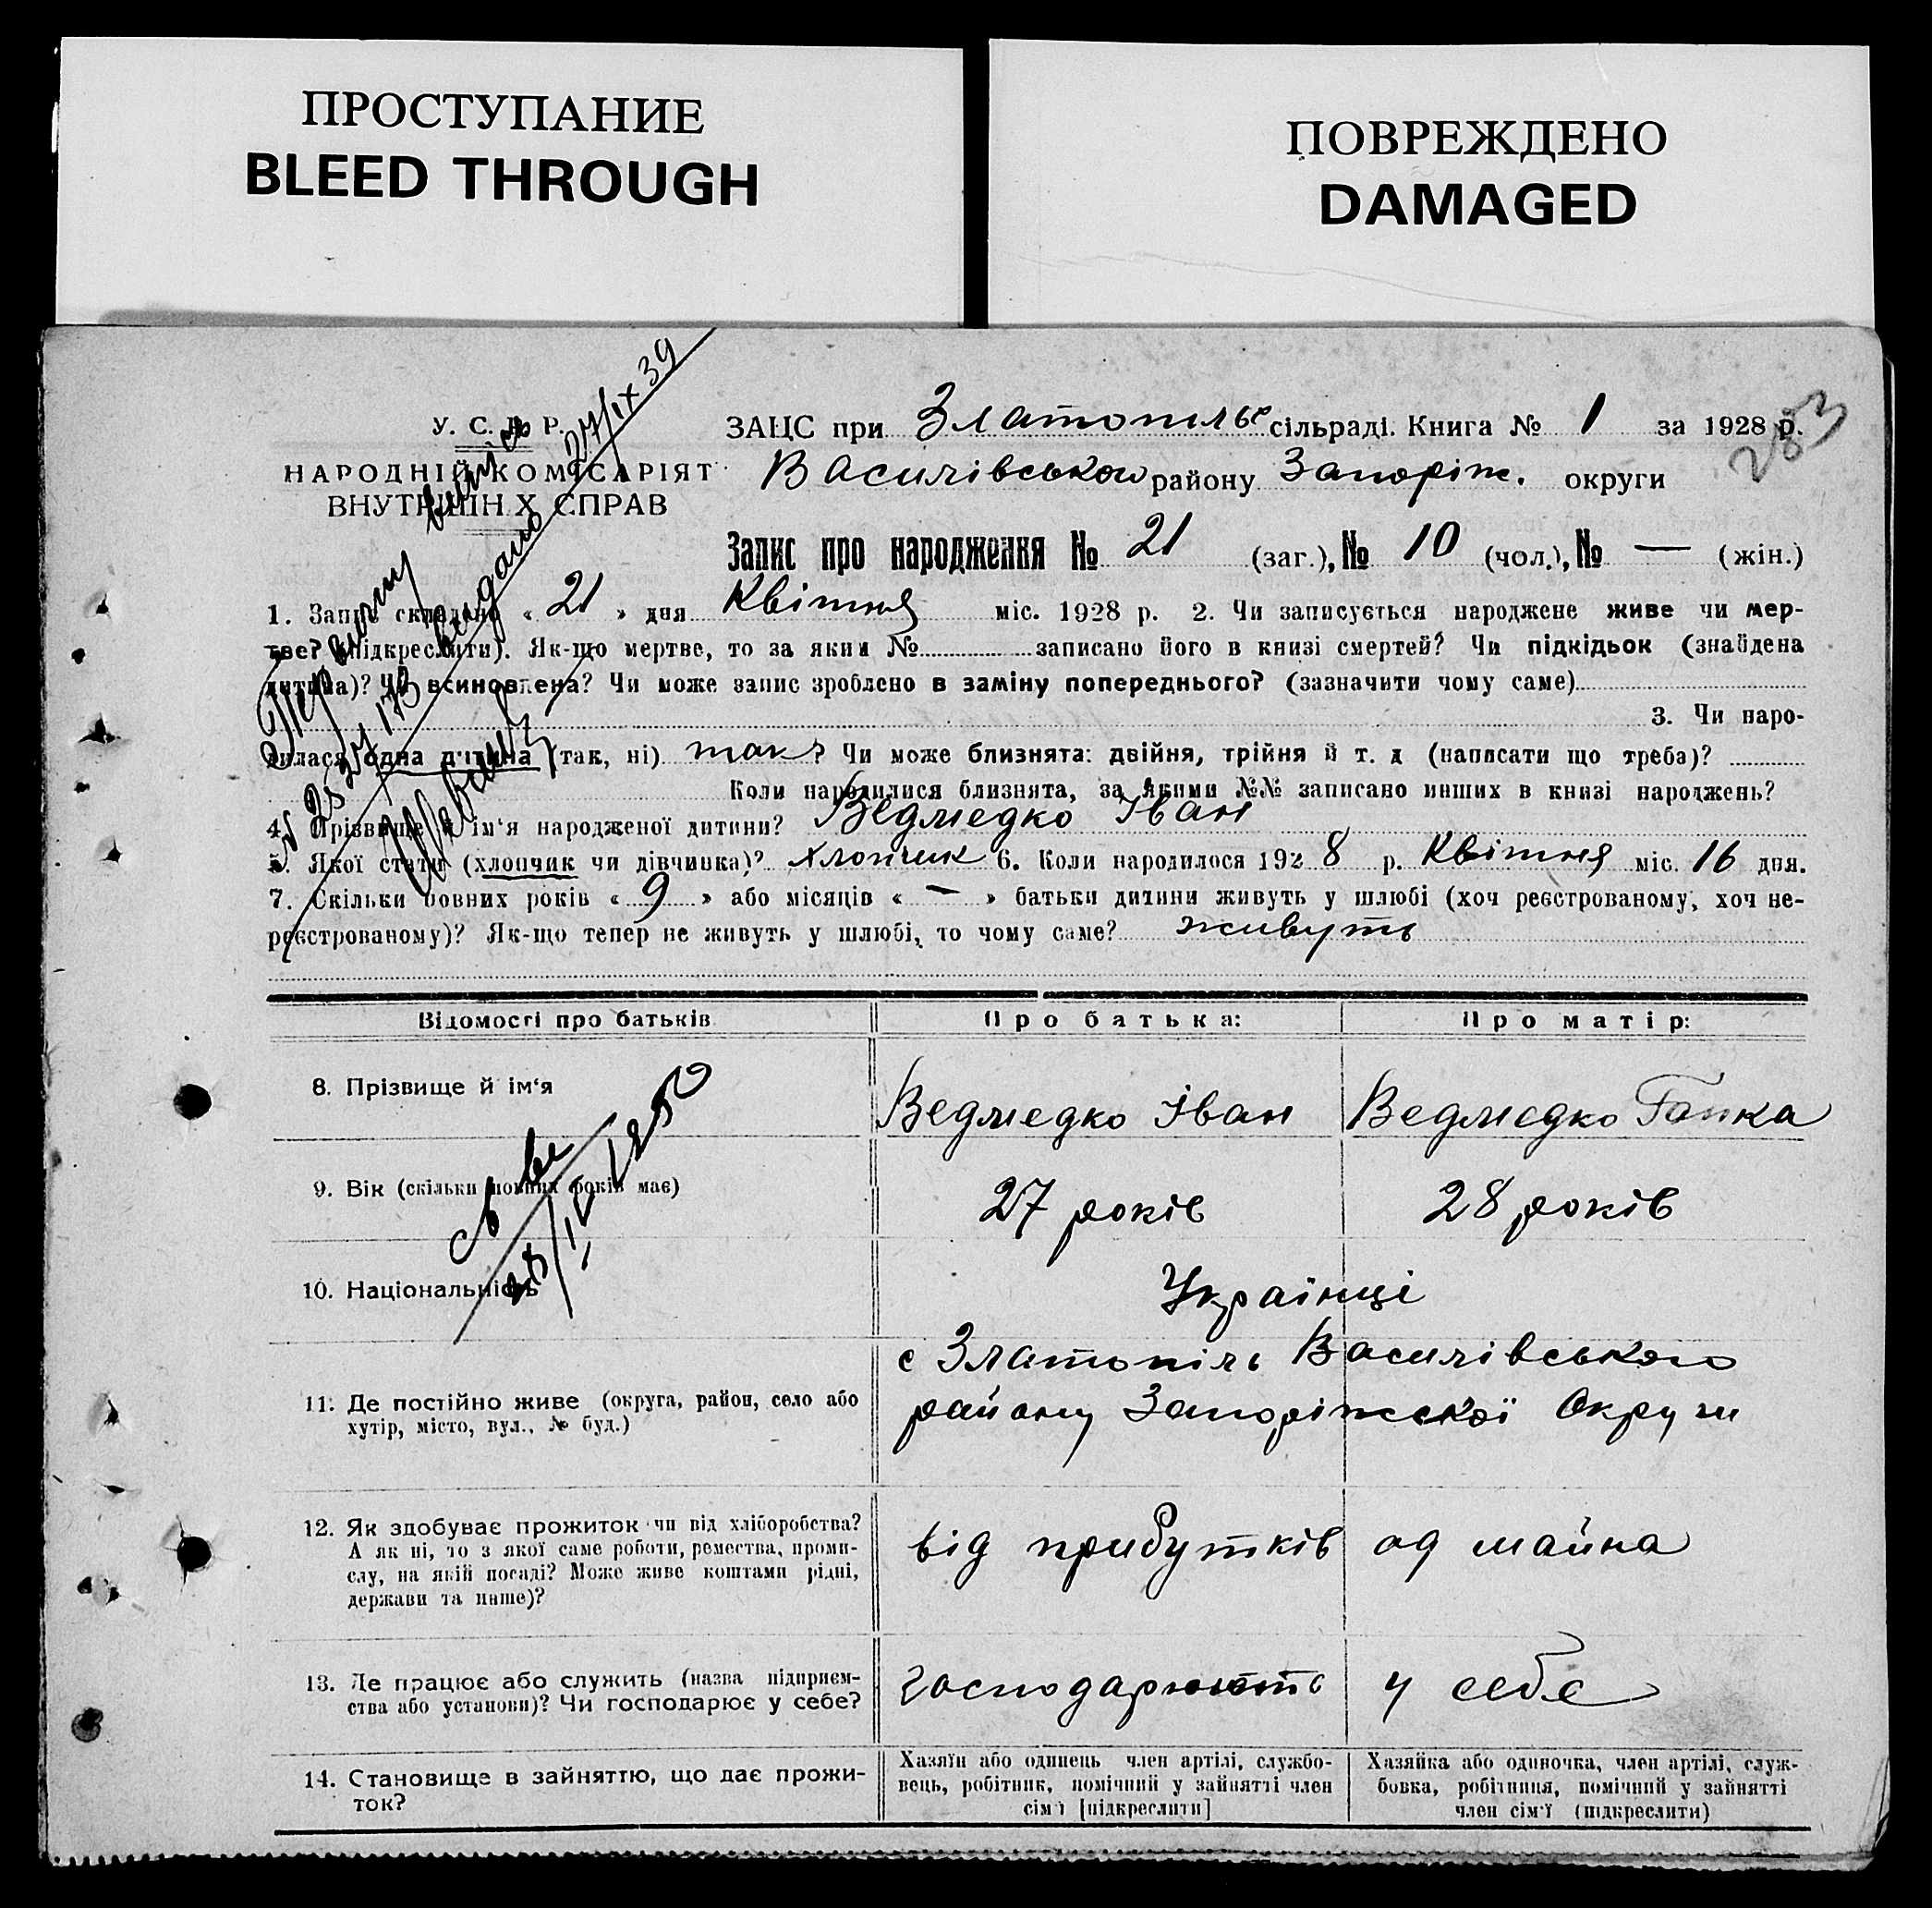 ПРОСТУПАНИЕ
BLEED THROUGH
ПОВРЕЖДЕНО
DAMAGED
У. С. Р. Р.
НАРОДНІЙ КОМІСАРІЯТ
ВНУТРІШНІХ СПРАВ
27/IX 39
283
ЗАЦС при Златопільс сільраді. Книга № 1 за 1928 р.
Василівського району Запоріж. округи
Запис про народження № 21 (заг.), № 10 (чол.), № — (жін.)
1. Запис складено « 21 » дня Квітня міс. 1928 р. 2. Чи записується народжене живе чи мер-
тве? (підкреслити). Як-що мертве, то за яким № записано його в книзі смертей? Чи підкідьок (знайдена
дитина)? Чи всиновлена? Чи може запис зроблено в заміну попереднього? (зазначити чому саме)
3. Чи наро-
дилася одна дитина (так, ні) так? Чи може близнята: двійня, трійня й т. д (написати що треба)?
Коли народилися близнята, за якими №№ записано инших в книзі народжень?
4. Прізвище й ім'я народженої дитини? Ведмедко Іван
5. Якої стати (хлопчик чи дівчинка)? Хлопчик 6. Коли народилося 1928 р. Квітня міс. 16 дня.
7. Скільки повних років « 9 » або місяців « — » батьки дитини живуть у шлюбі (хоч реєстрованому, хоч не-
реєстрованому)? Як-що тепер не живуть у шлюбі, то чому саме? живуть
Відомості про батьків
Про батька:
Про матір:
8. Прізвище й ім'я
Ведмедко Іван
Ведмедко Гапка
9. Вік (скільки повних років має)
27 років
28 років
10. Національність
Українці
11. Де постійно живе (округа, район, село або
хутір, місто, вул., № буд.)
с Златопіль Василівського
району Запоріжскої Округи
12. Як здобуває прожиток чи від хліборобства?
А як ні, то з якої саме роботи, ремества, проми-
слу, на якій посаді? Може живе коштами рідні,
держави та инше)?
від прибутків од майна
13. Де працює або служить (назва підприєм-
ства або установи)? Чи господарює у себе?
господарюють у себе
14. Становище в зайняттю, що дає прожи-
ток?
Хазяїн або одинець член артілі, службо-
вець, робітник, помічний у зайнятті член
сім'ї [підкреслити]
Хазяйка або одиночка, член артілі, служ-
бовка, робітниця, помічний у зайнятті
член сім'ї (підкреслити)